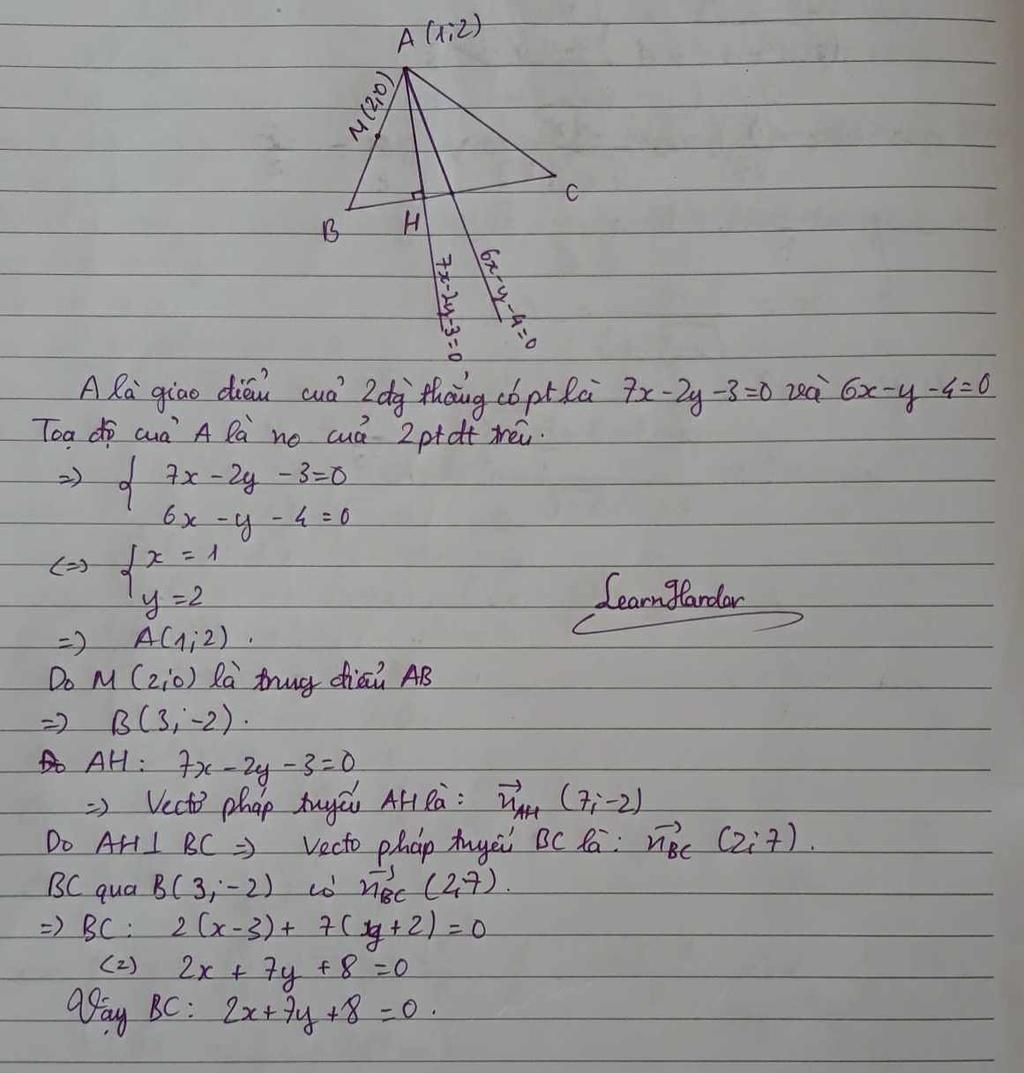 A (1;2)
M (2;0)
B
H
C
7x-2y-3=0
6x-y-4=0
A là giao điểm của 2 đg thẳng có pt là 7x-2y-3=0 và 6x-y-4=0
Toạ độ của A là no của 2 pt đt trên.
=> { 7x-2y-3=0
6x-y-4=0
<=> { x=1
y=2
=> A(1;2).
LearnHarder
Do M (2;0) là trung điểm AB
=> B(3;-2).
AH: 7x-2y-3=0
=> Vectơ pháp tuyến AH là: n⃗AH (7;-2)
Do AH⊥BC => Vecto pháp tuyến BC là: n⃗BC (2;7).
BC qua B(3;-2) có n⃗BC (2;7).
=> BC: 2(x-3)+7(y+2)=0
(2) 2x+7y+8=0
Vậy BC: 2x+7y+8=0.